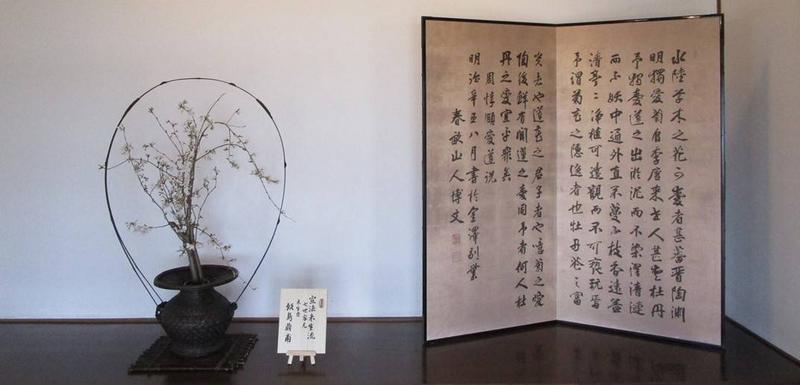 水陸草木之花可愛者甚蕃晋陶淵
明獨愛菊自李唐来世人甚愛牡丹
予獨愛蓮之出淤泥而不染濯清漣
而不妖中通外直不蔓不枝香遠益
清亭々浄植可遠観而不可褻玩焉
予謂菊花之隠逸者也牡丹花之富
貴者也蓮花之君子者也噫菊之愛
陶後鮮有聞蓮之愛同予者何人牡
丹之愛宜乎衆矣
周惇頤愛蓮説
明治辛丑八月書於金澤別業
春畝山人博文
法未生流
七世家元
飯島